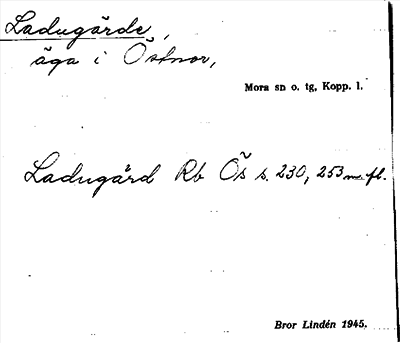 Ladugärde,
äga i Östnor,
Mora sn o. tg, Kopp. l.
Ladugärd Rb Ös s. 230, 253 m. fl.
Bror Lindén 1945.